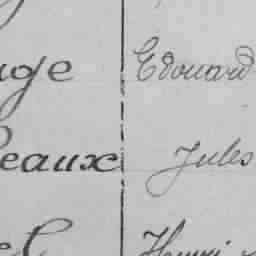 uge Edouard
eaux Jules
el Henri